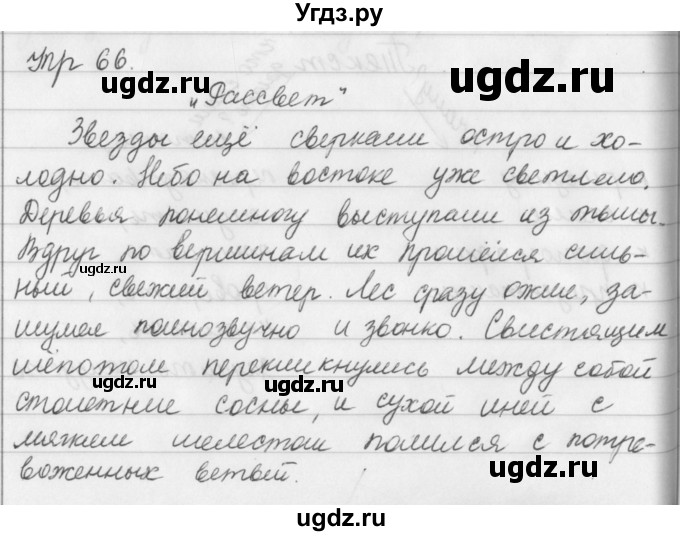 Угдз.ру
Упр 66.
ugdz.ru ugdz.ru
"Рассвет"
Звезды ещё сверкали остро и хо-
лодно. Небо на востоке уже светлело.
Деревья понемногу выступали из тьмы.
Вдруг по вершинам их прошёлся силь-
ugdz.ru
ный, свежий ветер. Лес сразу ожил, за-
шумел полнозвучно и звонко. Свистящим
шёпотом перекликнулись между собой
ugdz.ru
столетние сосны, и сухой иней с
мягким шелестом полился с потре-
ugdz.ru
воженных ветвей.
ugdz.ru